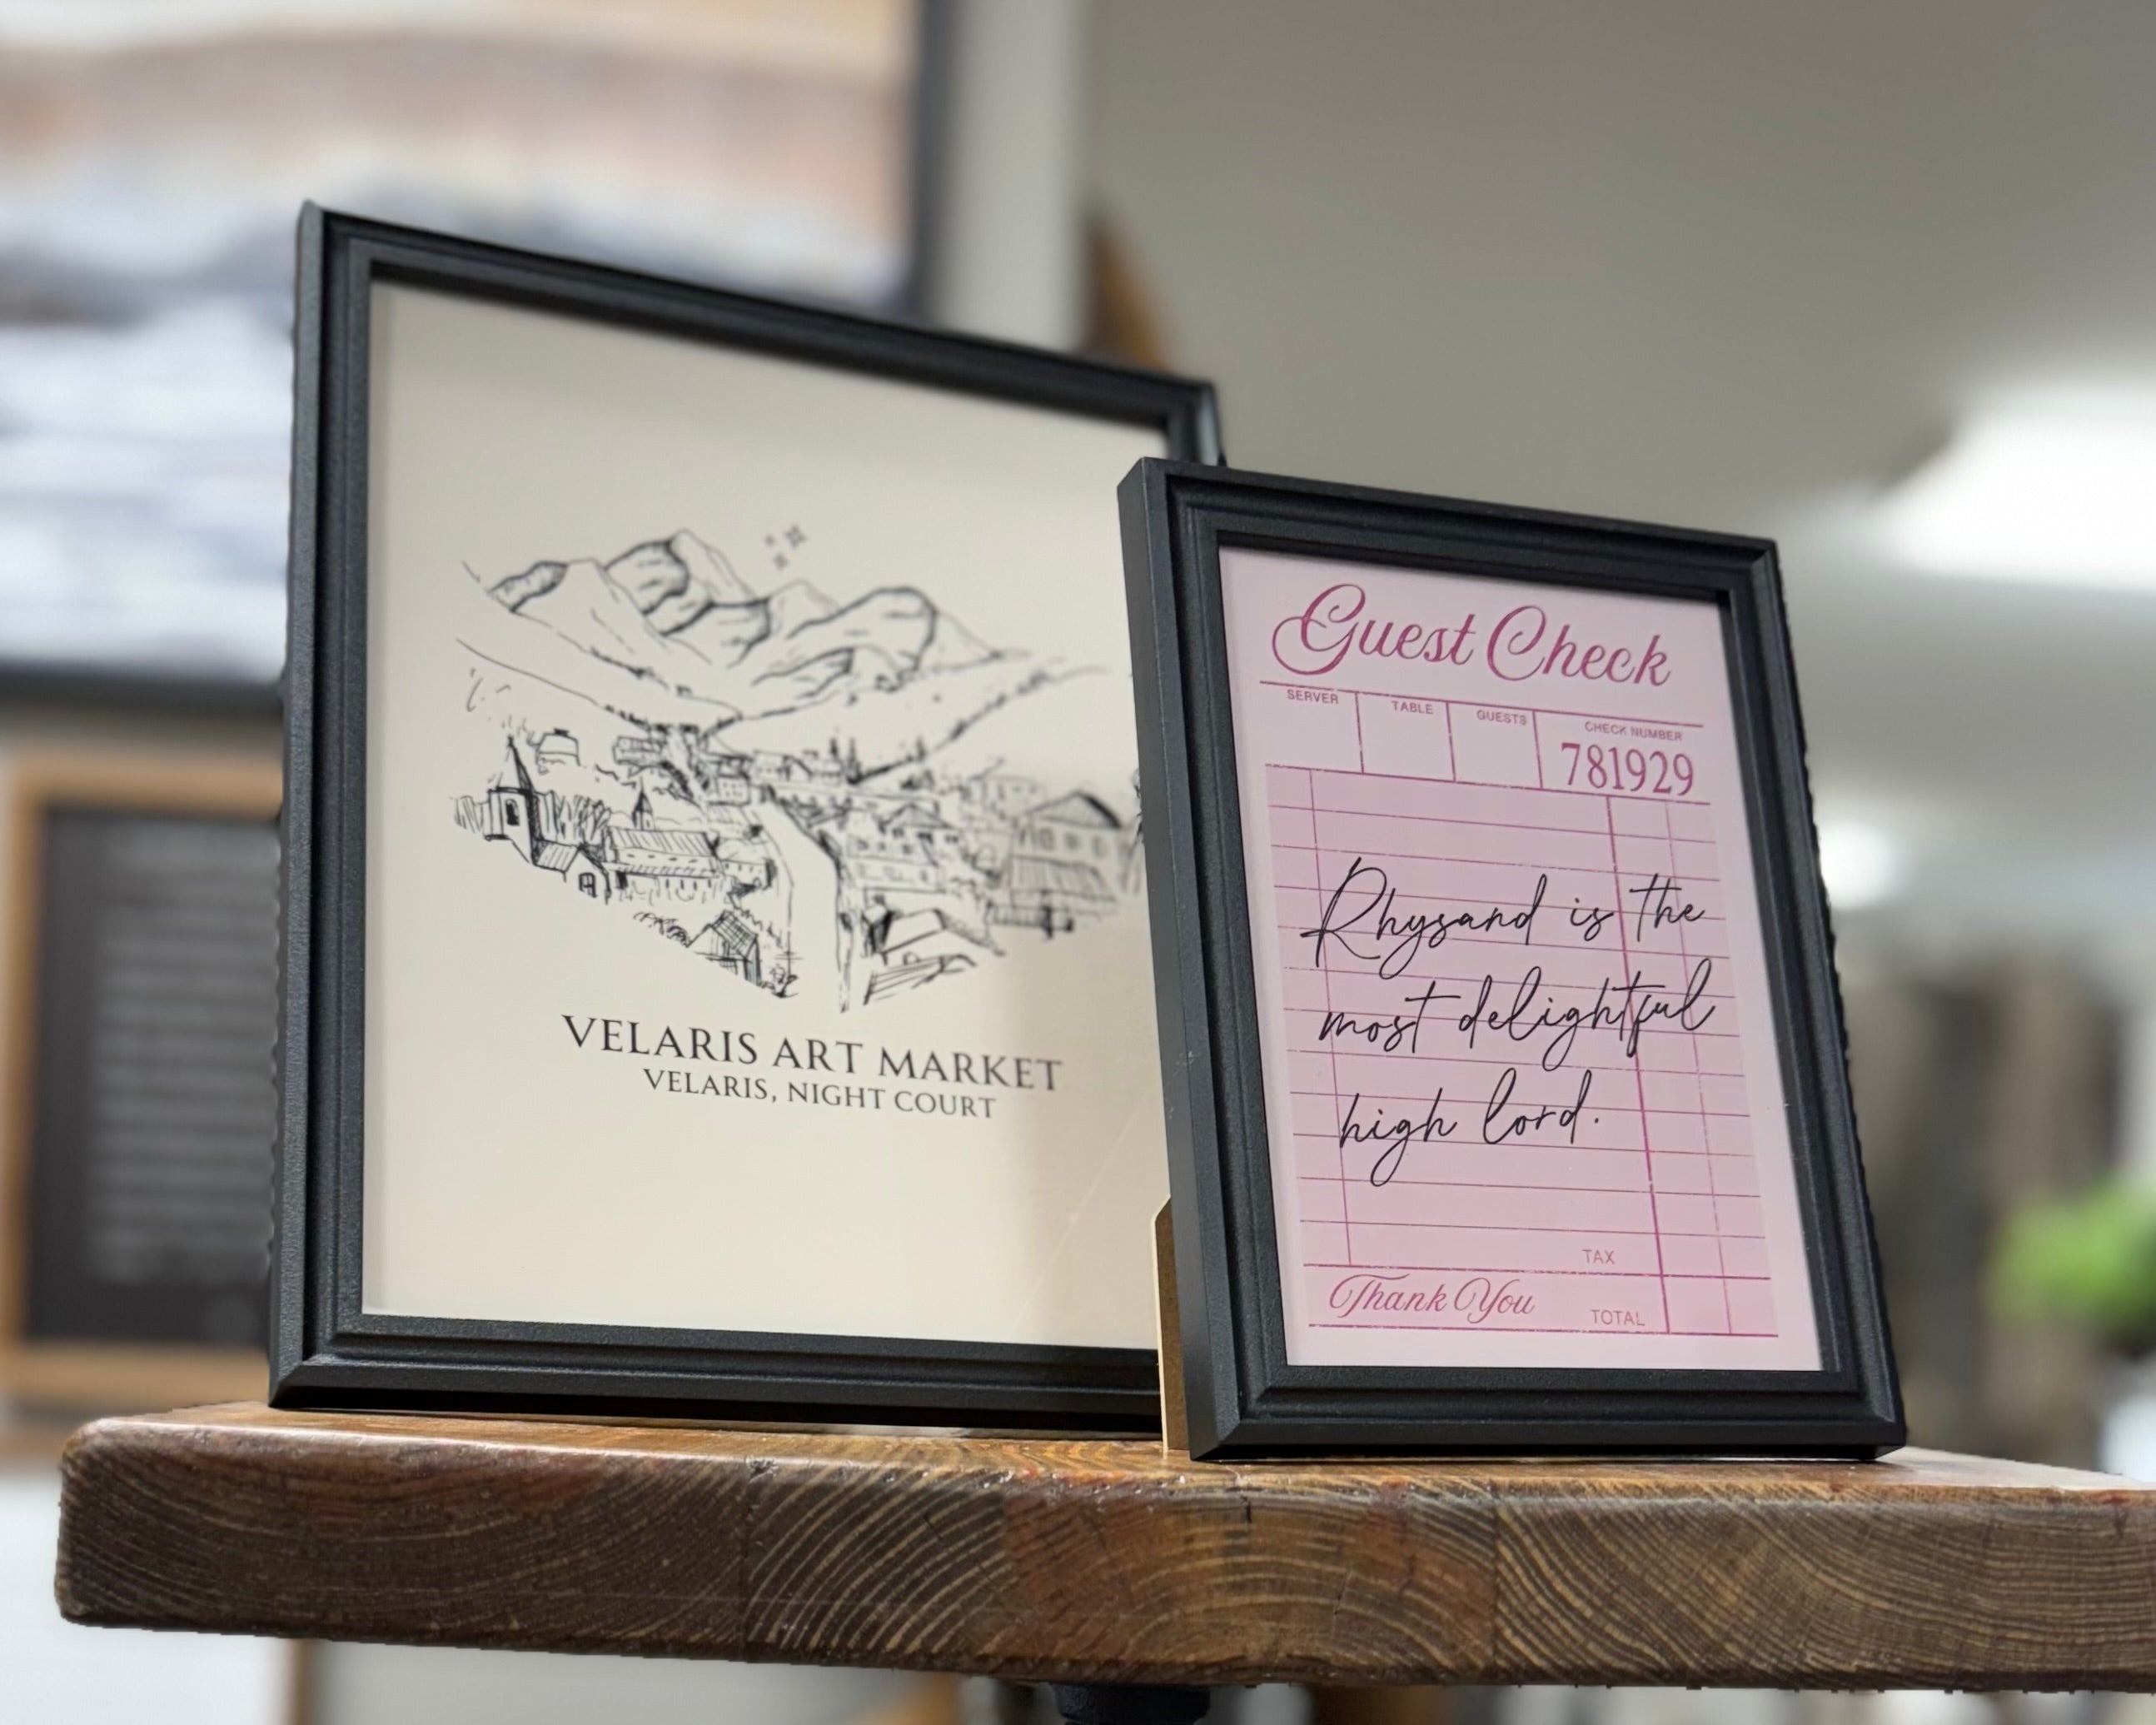 VELARIS ART MARKET
VELARIS, NIGHT COURT
Guest Check
SERVER TABLE GUESTS CHECK NUMBER
781929
Rhysand is the
most delightful
high lord.
TAX
Thank You TOTAL